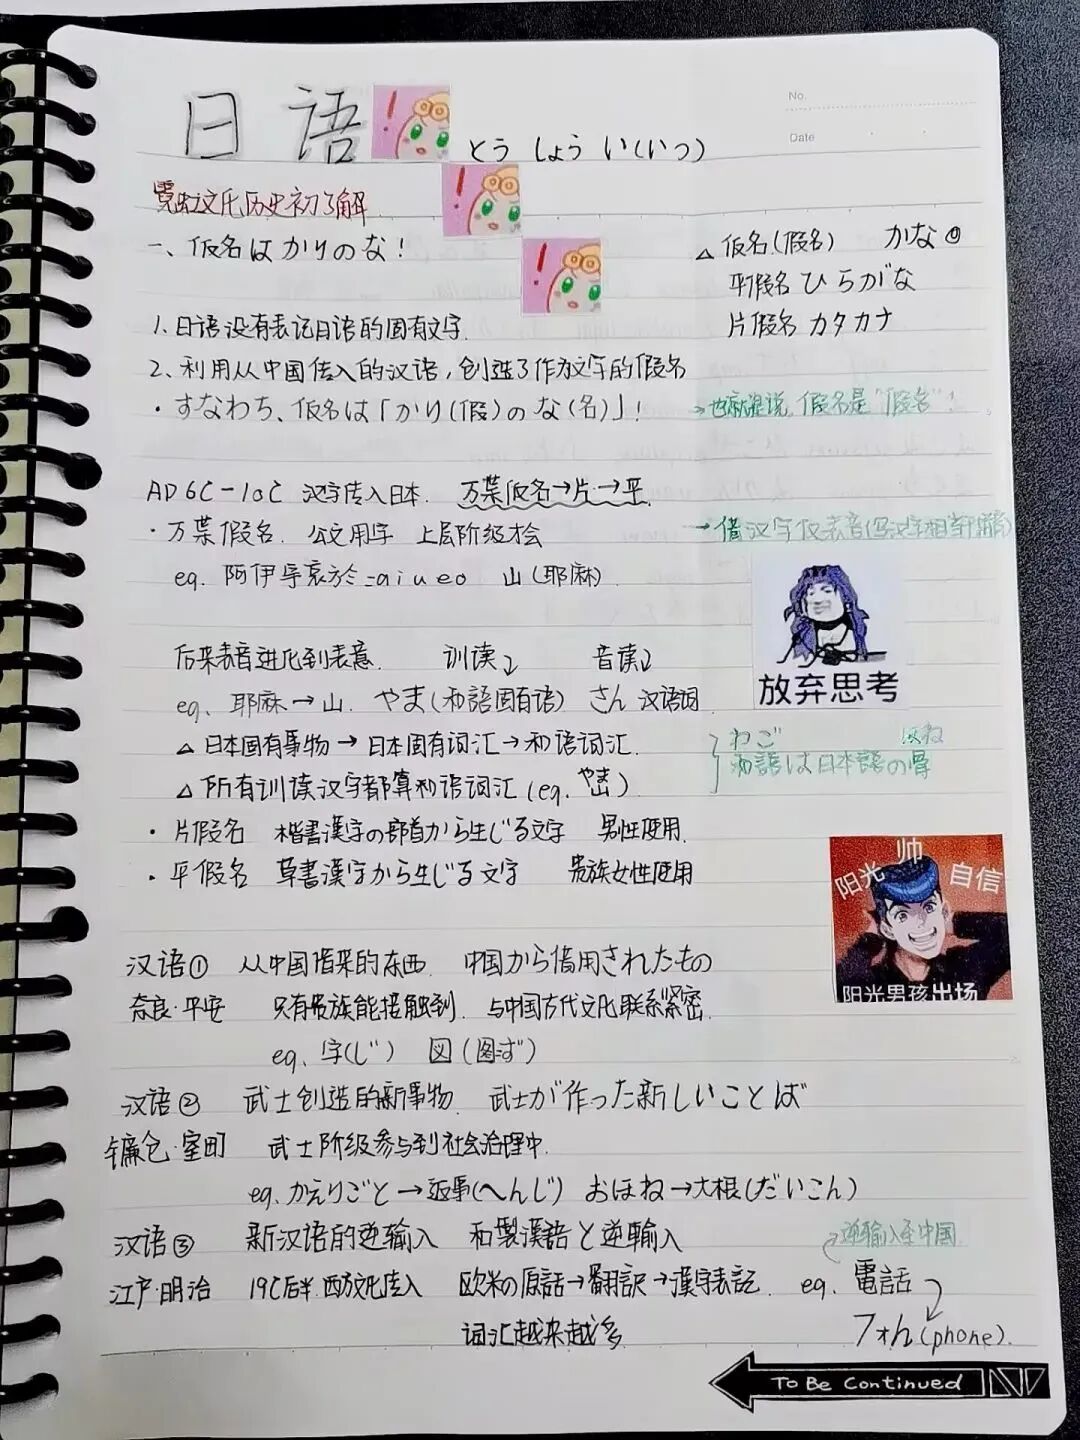 日语 とう しょう い(いつ)
No.
Date
霓虹文化历史初了解
一、仮名はかりのな!
△ 仮名(假名) かな◎
平假名 ひらがな
片假名 カタカナ
1.日语没有表记日语的固有文字.
2、利用从中国传入的汉语,创造了作为文字的假名
・すなわち、仮名は「かり(假)のな(名)」!
→也就是说,假名是"假名"!
AD 6C-10C 汉字传入日本. 万葉仮名→片→平.
・万葉假名. 公文用字 上层阶级才会
→借汉字仅表音
eg. 阿伊 於=aiueo 山(耶麻).
放弃思考
后来表音进化到表意. 训读↓ 音读↓
eg、耶麻→山. やま(和語固有语) さん 汉语词
△日本固有事物→日本固有词汇→和语词汇.
わご ほね
和語は日本語の骨
△所有训读汉字都算和语词汇(eg. やま).
・片假名 楷書漢字の部首から生じる文字 男性使用.
・平假名 草書漢字から生じる文字 贵族女性使用
阳光 帅 自信
阳光男孩出场
汉语① 从中国借来的东西. 中国から借用されたもの
奈良・平安 只有贵族能接触到. 与中国古代文化联系紧密.
eg、字(じ) 図(图ず)
汉语② 武士创造的新事物. 武士が作った新しいことば
镰仓・室町 武士阶级参与到社会治理中.
eg.かえりごと→返事(へんじ) おほね→大根(だいこん)
汉语③ 新汉语的逆输入 和製漢語と逆輸入
逆输入至中国
江户・明治 19C后半.西方文化传入 欧米の原話→翻訳→漢字表記. eg. 電話
词汇越来越多 フォん(phone).
To Be Continued